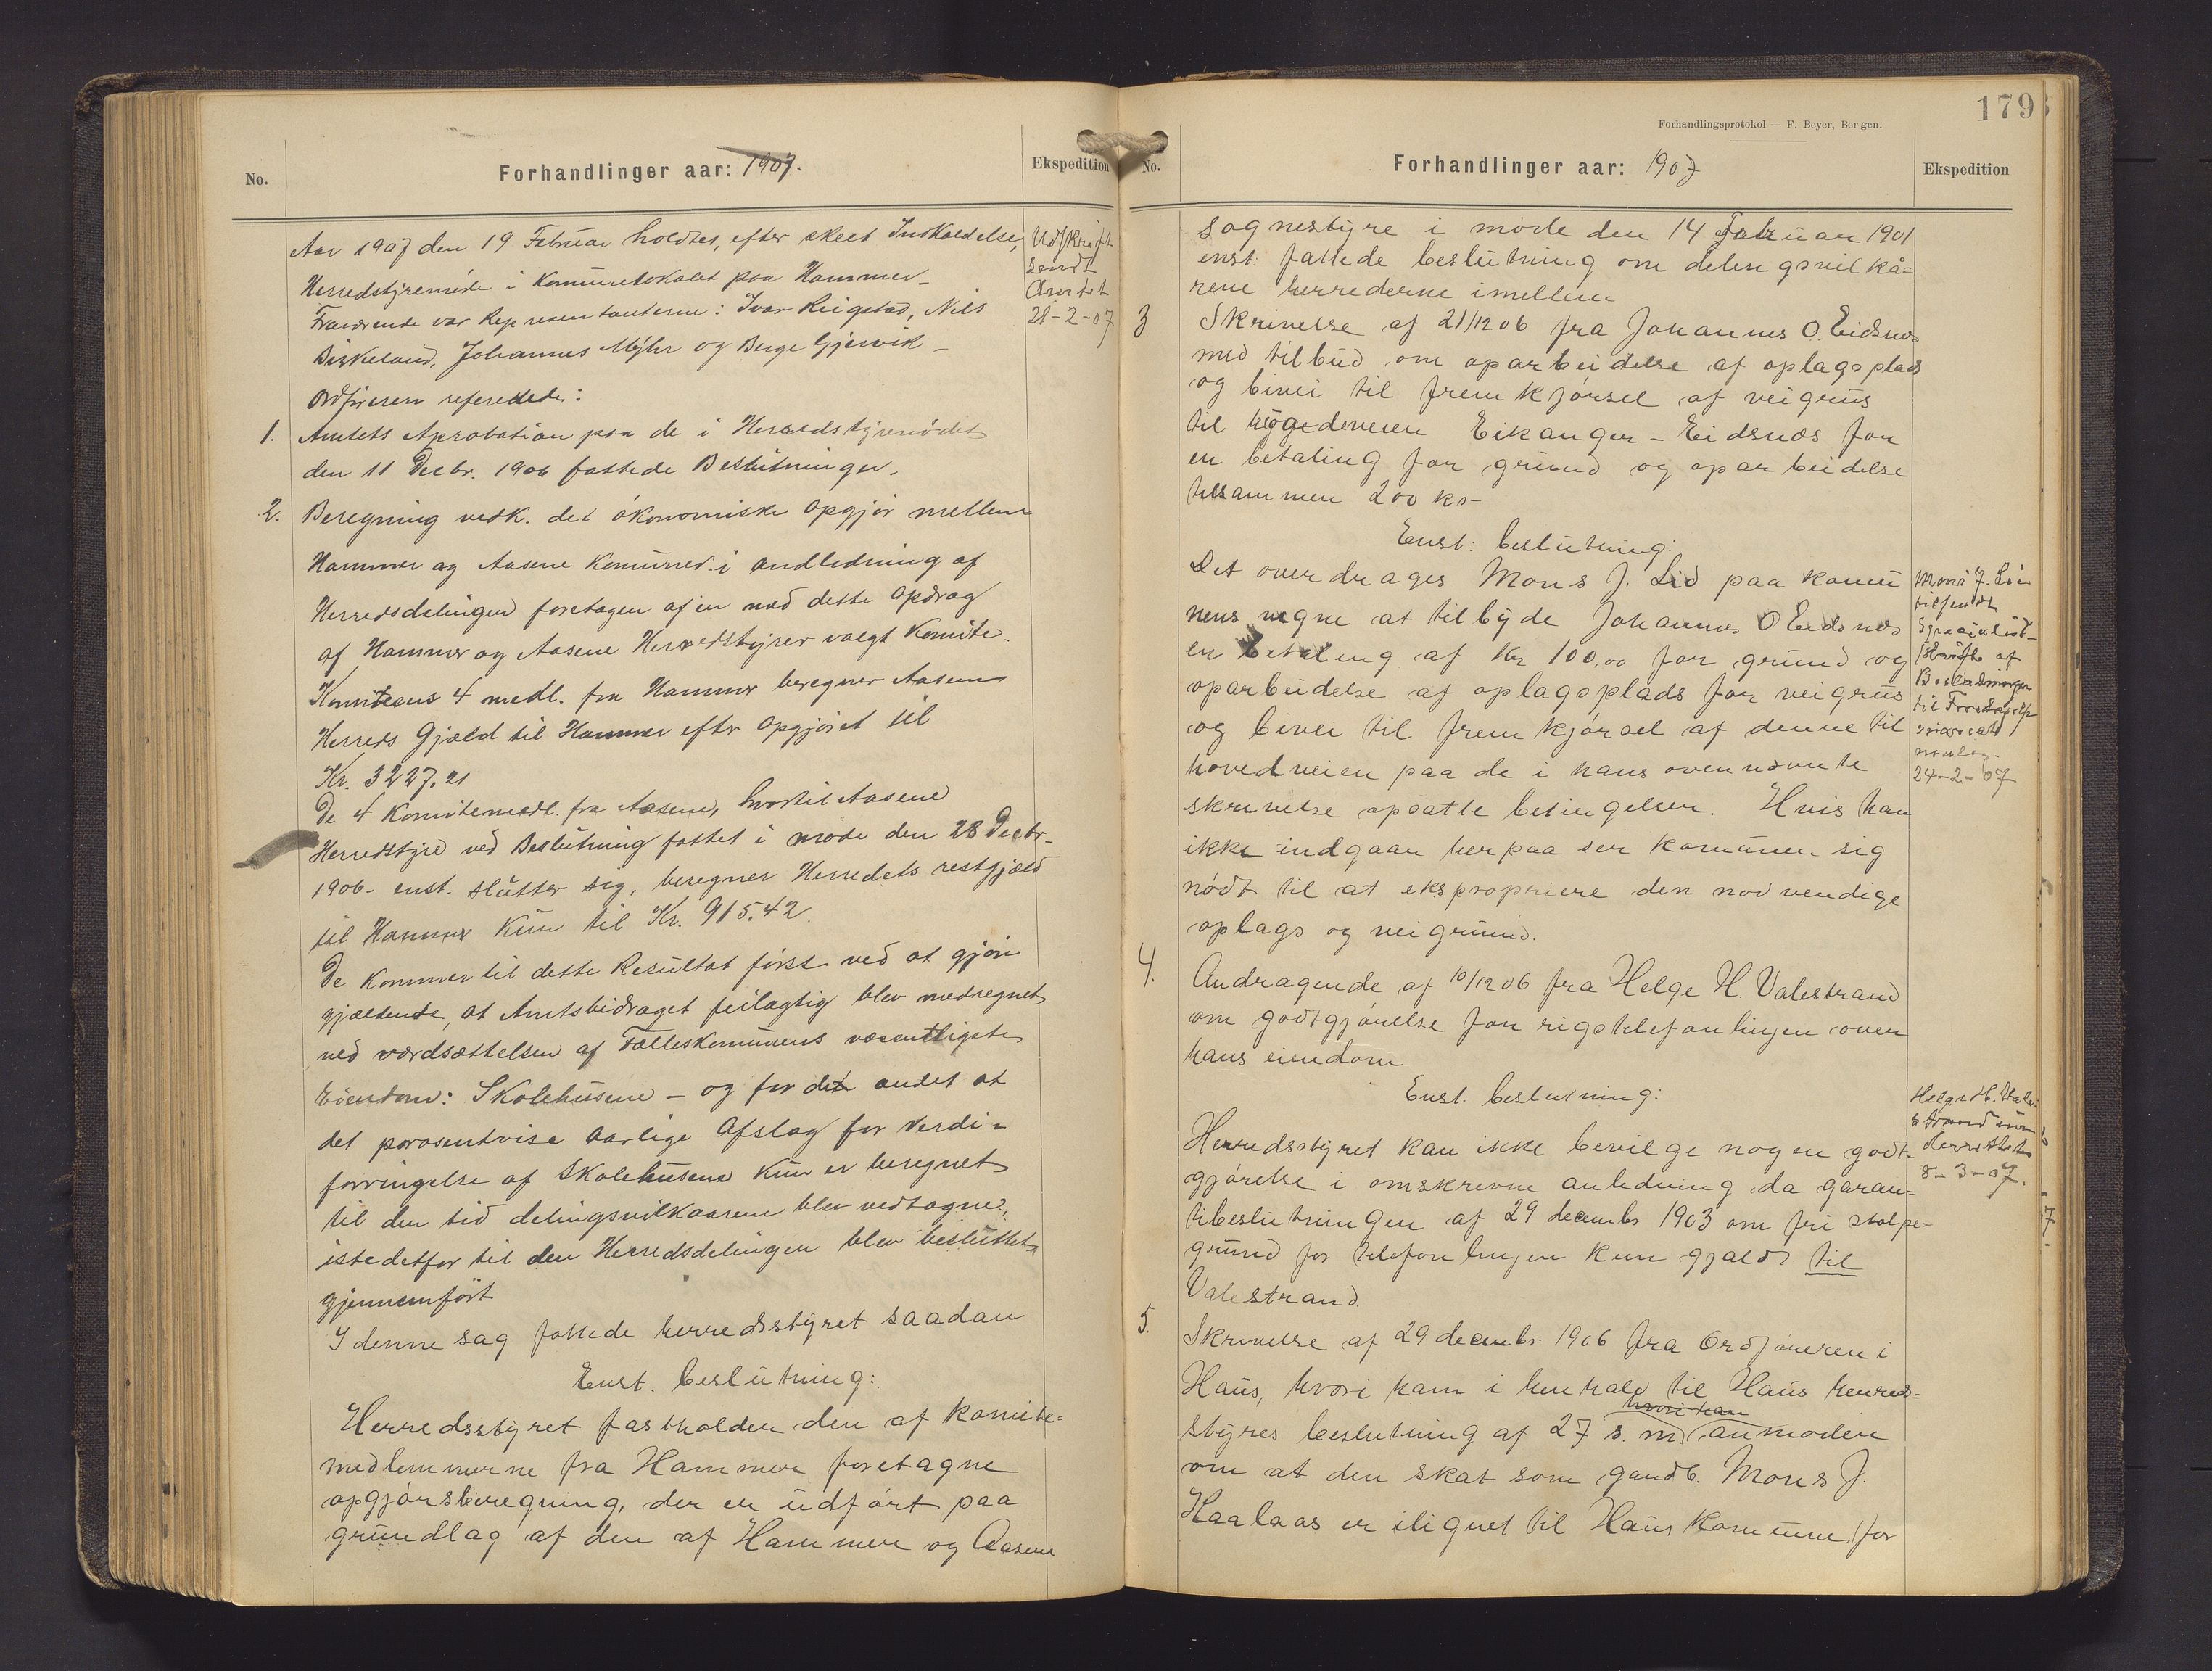 No.
Forhandlinger aar: 1907.
Ekspedition
Aar 1907 den 19 Februar holdtes, efter skeet Indkaldelse,
Herredstyremöde i Komunelokalet paa Hammer-
Fraværende var Representanterne: Ivar Reigstad, Nils
Birkeland, Johannes Myhr og Berge Gjervik-
Ordföreren refererede:
1. Amtets Aprobation paa de i Herredstyremödet
den 11 Decbr. 1906 fattede Beslutninger.
2. Beregning vedk. det ökonomiske Opgjör mellem
Hammer og Aasene Komuner i andledning af
Herredsdelingen foretagen af en med dette Opdrag
af Hammer og Aasene Herredstyrer valgt Komite.
Komiteens 4 medl. fra Hammer beregner Aasene
Herreds Gjæld til Hammer efter Opgjöret til
Kr. 3227.21
De 4 Komitemedl. fra Aasene, hvortil Aasene
Herredstyre ved Beslutning fattet i möde den 28 Decbr-
1906- enst. slutter sig, beregner Herredets restgjæld
til Hammer Kun til Kr. 915.42.
De Kommer til dette Resultat först ved at gjöre
gjældende, at Amtsbidraget feilagtig blev medregnet
ved værdsættelsen af Fælleskomunens væsentligste
Eiendom: Skolehusene - og for det andet at
det porosentvise aarlige Afslag for Verdi-
forringelse af Skolehusene Kun er beregnet
til den tid delingsvilkaarene blev vedtagne,
istedetfor til den Herredsdelingen blev besluttet
gjennemfört
I denne sag fattede herredsstyret saadan
Enst. beslutning:
Herredsstyret fastholder den af komite-
medlemmerne fra Hammer foretagne
opgjörsberegning, der er udfört paa
grundlag af den af Hammer og Aasene
Udskrift
sendt
Amtet
28-2-07
179
Forhandlingsprotokol — F. Beyer, Bergen.
No.
Forhandlinger aar: 1907
Ekspedition
sognestyre i möde den 14 Februar 1901
enst. fattede beslutning om delingsvilkå-
rene herrederne imellem
3 Skrivelse af 21/12 06 fra Johannes O. Eidsnes
med tilbud om oparbeidelse af oplagsplads
og bivei til fremkjörsel af veigrus
til bygdeveien Eikanger - Eidsnes for
en betaling for grund og oparbeidelse
tilsammen 200 kr-
Enst: beslutning:
Det overdrages Mons J. Lid paa komu
nens vegne at tilbyde Johannes O Eidsnes
en betaling af Kr 100,00 for grund og
oparbeidelse af oplagsplads for veigrus
og bivei til fremkjörsel af denne til
hovedveien paa de i hans ovennævnte
skrivelse opsatte betingelser. Hvis han
ikke indgaar herpaa ser komunen sig
nödt til at ekspropriere den nødvendige
oplags og veigrund.
4. Andragende af 10/12 06 fra Helge H. Valestrand
om godtgjörelse for rigstelefonlinjen over
hans eiendom
Enst. beslutning:
Herredsstyret kan ikke bevilge nogen godt-
gjörelse i omskrevne anledning da garan-
tibeslutningen af 29 decembr 1903 om fri stolpe-
grund for telefonlinjen kun gjaldt til
Valestrand
5. Skrivelse af 29 decembr 1906 fra Ordföreren i
Haus, hvori han i henhold til Haus herreds-
styres beslutning af 27 s. m. hvori han anmoder
om at den skat som gaardb. Mons J.
Haalaas er ilignet til Haus komune for
Mons J. Lid
tilsendt
Specialud-
skrift af
Beslutningen
til
24-2-07
Helge H. Vale-
strand un-
derrettet
8-3-07.